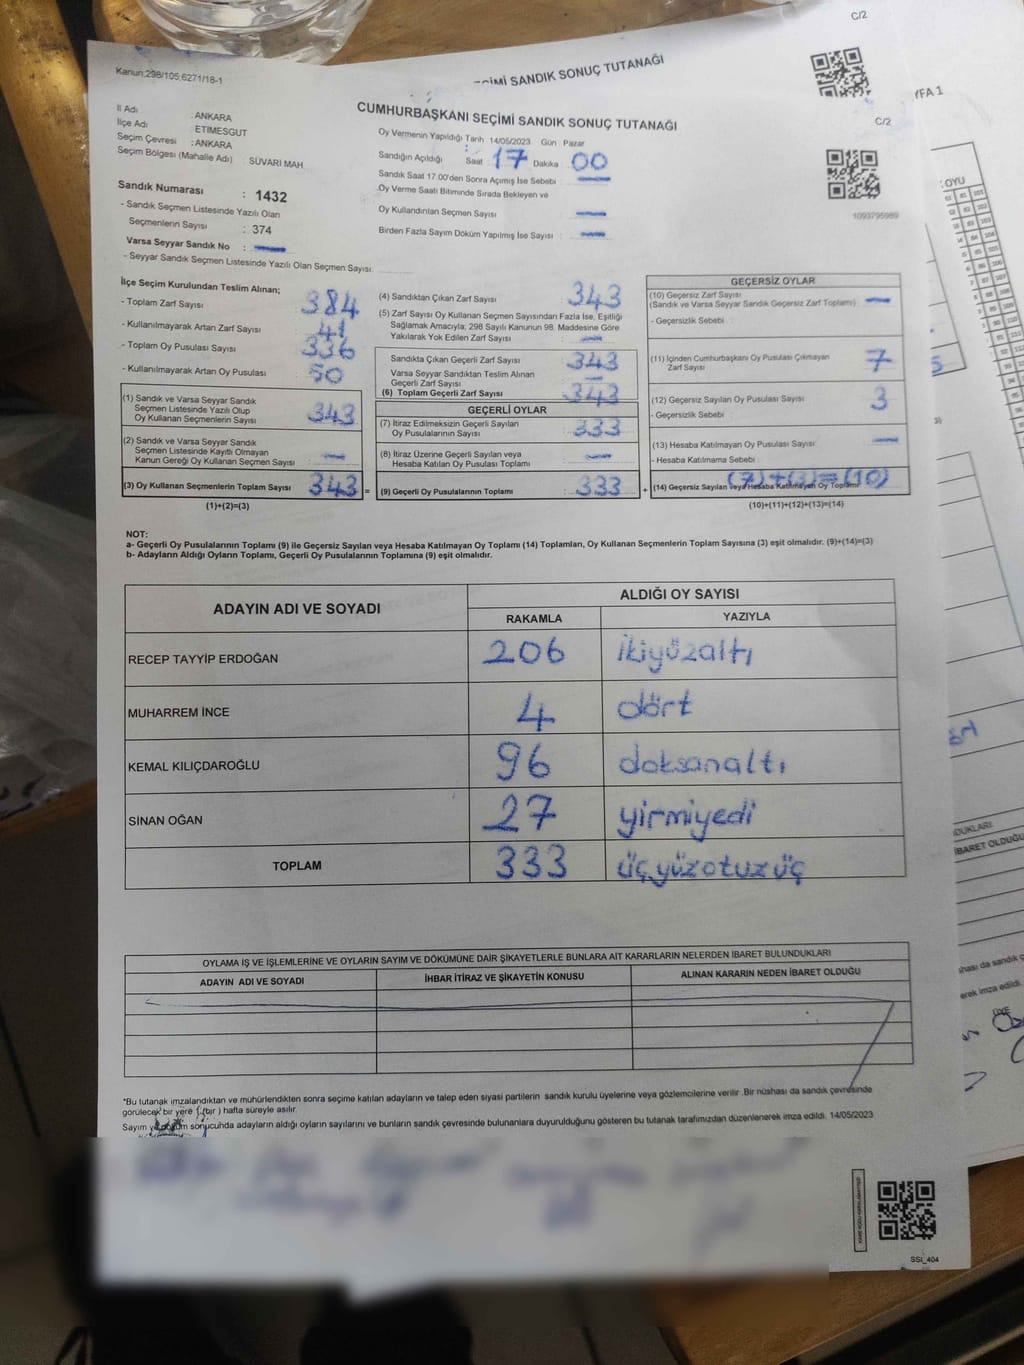 C/2
SEÇİMİ SANDIK SONUÇ TUTANAĞI
YFA 1
Kanun:298/105;6271/18-1
C/2
CUMHURBAŞKANI SEÇİMİ SANDIK SONUÇ TUTANAĞI
İl Adı : ANKARA
İlçe Adı : ETİMESGUT
Seçim Çevresi : ANKARA
Seçim Bölgesi (Mahalle Adı) : SÜVARİ MAH.
Oy Vermenin Yapıldığı Tarih 14/05/2023 Gün : Pazar
Sandığın Açıldığı Saat : 17 Dakika 00
Sandık Saat 17.00'den Sonra Açımış İse Sebebi :
Oy Verme Saati Bitiminde Sırada Bekleyen ve
Oy Kullandırılan Seçmen Sayısı :
Birden Fazla Sayım Döküm Yapılmış İse Sayısı :
1093795989
Sandık Numarası : 1432
- Sandık Seçmen Listesinde Yazılı Olan
Seçmenlerin Sayısı : 374
Varsa Seyyar Sandık No :
- Seyyar Sandık Seçmen Listesinde Yazılı Olan Seçmen Sayısı:
İlçe Seçim Kurulundan Teslim Alınan;
- Toplam Zarf Sayısı : 384
- Kullanılmayarak Artan Zarf Sayısı : 41
- Toplam Oy Pusulası Sayısı : 336
- Kullanılmayarak Artan Oy Pusulası : 50
(1) Sandık ve Varsa Seyyar Sandık
Seçmen Listesinde Yazılı Olup
Oy Kullanan Seçmenlerin Sayısı : 343
(2) Sandık ve Varsa Seyyar Sandık
Seçmen Listesinde Kayıtlı Olmayan
Kanun Gereği Oy Kullanan Seçmen Sayısı :
(3) Oy Kullanan Seçmenlerin Toplam Sayısı : 343 =
(1)+(2)=(3)
(4) Sandıktan Çıkan Zarf Sayısı : 343
(5) Zarf Sayısı Oy Kullanan Seçmen Sayısından Fazla İse, Eşitliği
Sağlamak Amacıyla; 298 Sayılı Kanunun 98. Maddesine Göre
Yakılarak Yok Edilen Zarf Sayısı :
Sandıkta Çıkan Geçerli Zarf Sayısı : 343
Varsa Seyyar Sandıktan Teslim Alınan
Geçerli Zarf Sayısı :
(6) Toplam Geçerli Zarf Sayısı : 343
GEÇERLİ OYLAR
(7) İtiraz Edilmeksizin Geçerli Sayılan
Oy Pusulalarının Sayısı : 333
(8) İtiraz Üzerine Geçerli Sayılan veya
Hesaba Katılan Oy Pusulası Toplamı :
(9) Geçerli Oy Pusulalarının Toplamı : 333 +
GEÇERSİZ OYLAR
(10) Geçersiz Zarf Sayısı
(Sandık ve Varsa Seyyar Sandık Geçersiz Zarf Toplamı) :
- Geçersizlik Sebebi :
(11) İçinden Cumhurbaşkanı Oy Pusulası Çıkmayan
Zarf Sayısı : 7
(12) Geçersiz Sayılan Oy Pusulası Sayısı : 3
- Geçersizlik Sebebi :
(13) Hesaba Katılmayan Oy Pusulası Sayısı :
- Hesaba Katılmama Sebebi :
(14) Geçersiz Sayılan veya Hesaba Katılmayan Oy Toplamı : (7)+(3)=(10)
(10)+(11)+(12)+(13)=(14)
NOT:
a- Geçerli Oy Pusulalarının Toplamı (9) ile Geçersiz Sayılan veya Hesaba Katılmayan Oy Toplamı (14) Toplamları, Oy Kullanan Seçmenlerin Toplam Sayısına (3) eşit olmalıdır. (9)+(14)=(3)
b- Adayların Aldığı Oyların Toplamı, Geçerli Oy Pusulalarının Toplamına (9) eşit olmalıdır.
ADAYIN ADI VE SOYADI ALDIĞI OY SAYISI
RAKAMLA YAZIYLA
RECEP TAYYİP ERDOĞAN 206 ikiyüzaltı
MUHARREM İNCE 4 dört
KEMAL KILIÇDAROĞLU 96 doksanaltı
SİNAN OĞAN 27 yirmiyedi
TOPLAM 333 üçyüzotuzüç
OYLAMA İŞ VE İŞLEMLERİNE VE OYLARIN SAYIM VE DÖKÜMÜNE DAİR ŞİKAYETLERLE BUNLARA AİT KARARLARIN NELERDEN İBARET BULUNDUKLARI
ADAYIN ADI VE SOYADI İHBAR İTİRAZ VE ŞİKAYETİN KONUSU ALINAN KARARIN NEDEN İBARET OLDUĞU
*Bu tutanak imzalandıktan ve mühürlendikten sonra seçime katılan adayların ve talep eden siyasi partilerin sandık kurulu üyelerine veya gözlemcilerine verilir. Bir nüshası da sandık çevresinde
görülecek bir yere 1 (bir) hafta süreyle asılır.
Sayım ve döküm sonucunda adayların aldığı oyların sayılarını ve bunların sandık çevresinde bulunanlara duyurulduğunu gösteren bu tutanak tarafımızdan düzenlenerek imza edildi. 14/05/2023
SSI_404